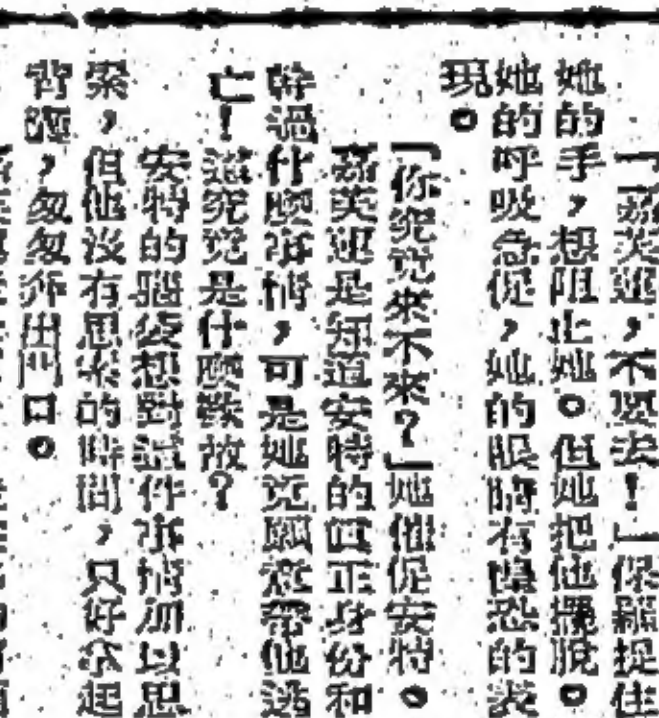 「嘉芙蓮,不要去!」保羅捉住
她的手,想阻止她。但她把他擺脫。
她的呼吸急促,她的眼睛有惶恐的表
現。
「你究竟來不來?」她催促安特。
嘉芙蓮是知道安特的真正身份和
幹過什麼事情,可是她竟願意帶他逃
亡!這究竟是什麼緣故?
安特的腦袋想對這件事情加以思
索,但他沒有思索的時間,只好拿起
背囊,匆匆奔出門口。